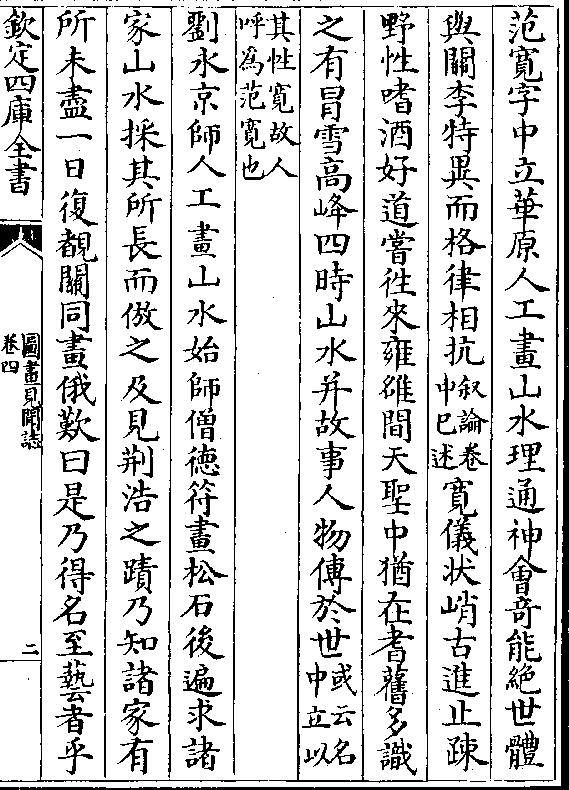 范寛字中立華原人工畫山水理通神會竒能絶世體
與關李特異而格律相抗叙論卷中已述寛儀状峭古進止疎
野性嗜酒好道嘗徃來雍雒間天聖中猶在耆舊多識
之有冒雪高峰四時山水并故事人物傳於世或云名中立以
其性寛故人呼為范寛也
劉永京師人工畫山水始師僧徳符畫松石後遍求諸
家山水採其所長而倣之及見荆浩之蹟乃知諸家有
所未盡一日復覩關同畫俄歎曰是乃得名至藝者乎
欽定四庫全書
圖畫見聞誌
卷四
二